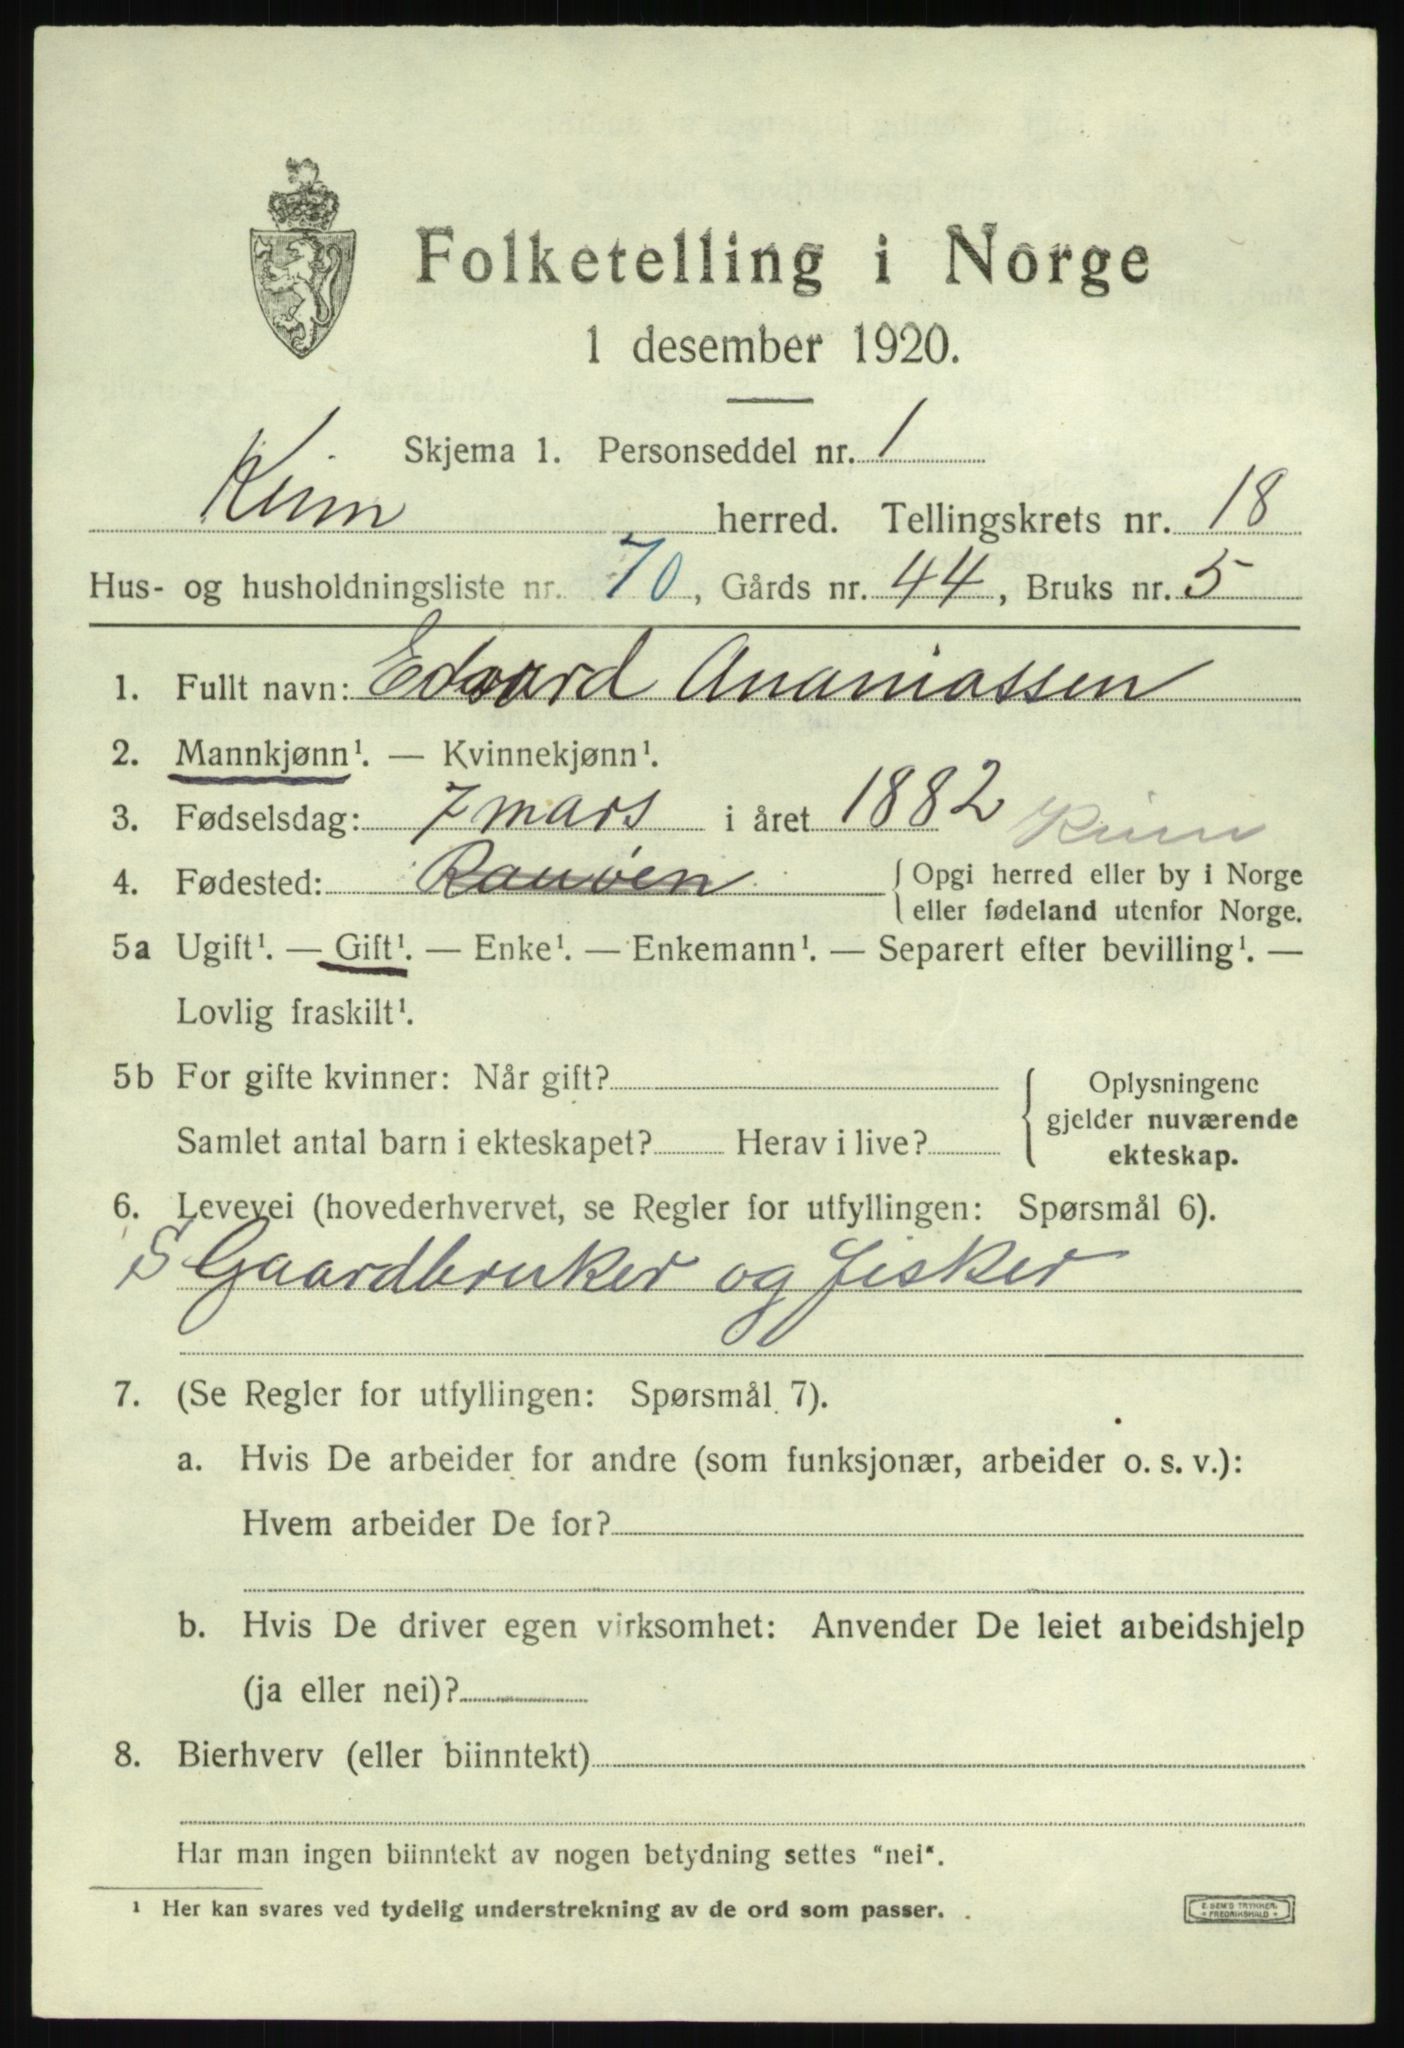 Folketelling i Norge
1 desember 1920.
Skjema 1. Personseddel nr. 1
Kinn herred. Tellingskrets nr. 18
Hus- og husholdningsliste nr. 70, Gårds nr. 44, Bruks nr. 5
1. Fullt navn: Edvard Ananiassen
2. Mannkjønn¹. — Kvinnekjønn¹.
3. Fødselsdag: 7 mars i året 1882 Kinn
4. Fødested: Rauøen { Opgi herred eller by i Norge
eller fødeland utenfor Norge.
5a Ugift¹. — Gift¹. — Enke¹. — Enkemann¹. — Separert efter bevilling¹. —
Lovlig fraskilt¹.
5b For gifte kvinner: Når gift?
Samlet antal barn i ekteskapet? Herav i live?
{ Oplysningene
gjelder nuværende
ekteskap.
6. Levevei (hovederhvervet, se Regler for utfyllingen: Spørsmål 6).
S Gaardbruker og fisker
7. (Se Regler for utfyllingen: Spørsmål 7).
a. Hvis De arbeider for andre (som funksjonær, arbeider o. s. v.):
Hvem arbeider De for?
b. Hvis De driver egen virksomhet: Anvender De leiet arbeidshjelp
(ja eller nei)?
8. Bierhverv (eller biinntekt)
Har man ingen biinntekt av nogen betydning settes "nei".
¹ Her kan svares ved tydelig understrekning av de ord som passer.
E. SEM'S TRYKKERI
FREDRIKSHALD